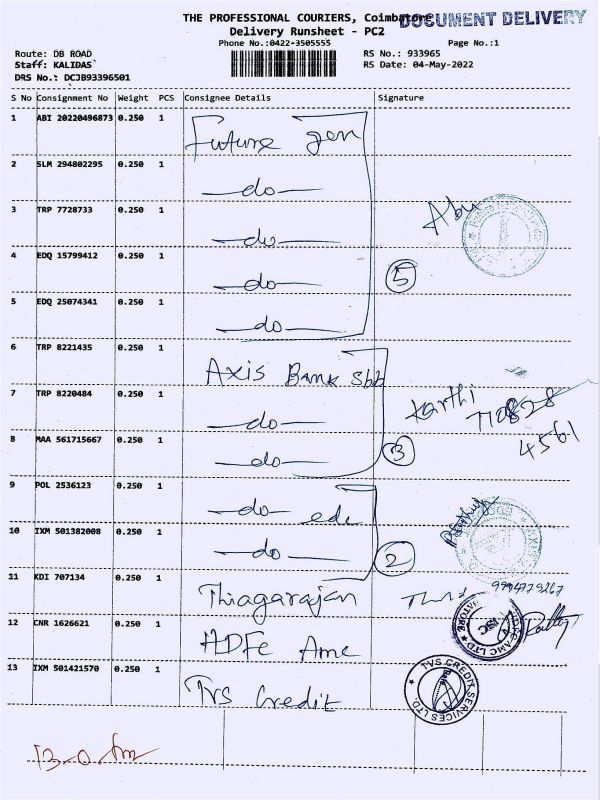 THE PROFESSIONAL COURIERS, Coimbatore
DOCUMENT DELIVERY
Delivery Runsheet - PC2
Phone No.:0422-3505555
Page No.:1
Route: DB ROAD
RS No.: 933965
Staff: KALIDAS`
RS Date: 04-May-2022
DRS No.: DCJB93396501
S No Consignment No Weight PCS Consignee Details Signature
1 ABI 20220496873 0.250 1 Future gen
2 SLM 294802295 0.250 1 -do-
3 TRP 7728733 0.250 1 -do- Abu
4 EDQ 15799412 0.250 1 -do- 5
5 EDQ 25074341 0.250 1 -do-
6 TRP 8221435 0.250 1 Axis Bank Sbb
7 TRP 8220484 0.250 1 -do- Karthi 710828
8 MAA 561715667 0.250 1 -do- 3 4561
9 POL 2536123 0.250 1 -do- edc
10 IXM 501382008 0.250 1 -do- 2
11 KDI 707134 0.250 1 Thiagarajan
12 CNR 1626621 0.250 1 HDFC Amc
13 IXM 501421570 0.250 1 TVS Credit
TVS CREDIT SERVICES LTD.